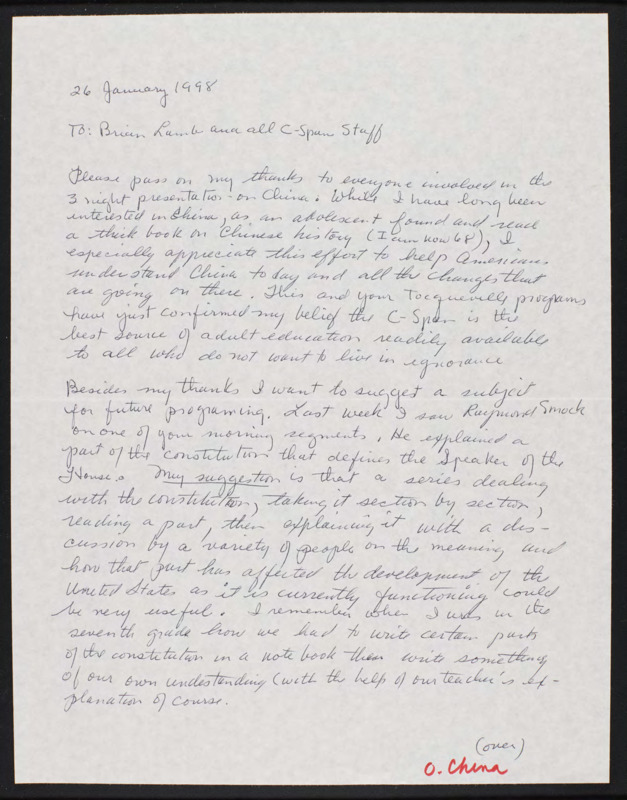 26 January 1998
To: Brian Lamb and all C-Span Staff
Please pass on my thanks to everyone involved in the
3 night presentation on China. While I have long been
interested in China, as an adolescent found and read
a thick book on Chinese history (I am now 68), I
especially appreciate this effort to help Americans
understand China today and all the changes that
are going on there. This and your Tocqueville programs
have just confirmed my belief the C-Span is the
best source of adult education readily available
to all who do not want to live in ignorance
Besides my thanks I want to suggest a subject
for future programing. Last week I saw Raymond Smock
on one of your morning segments. He explained a
part of the constitution that defines the Speaker of the
House. My suggestion is that a series dealing
with the constitution, taking it section by section,
reading a part, then explaining it with a dis-
cussion by a variety of people on the meaning and
how that part has affected the development of the
United States as it is currently functioning could
be very useful. I remember when I was in the
seventh grade how we had to write certain parts
of the constitution in a note book then write something
of our own understanding (with the help of our teacher's ex-
planation of course.
(over)
O. China